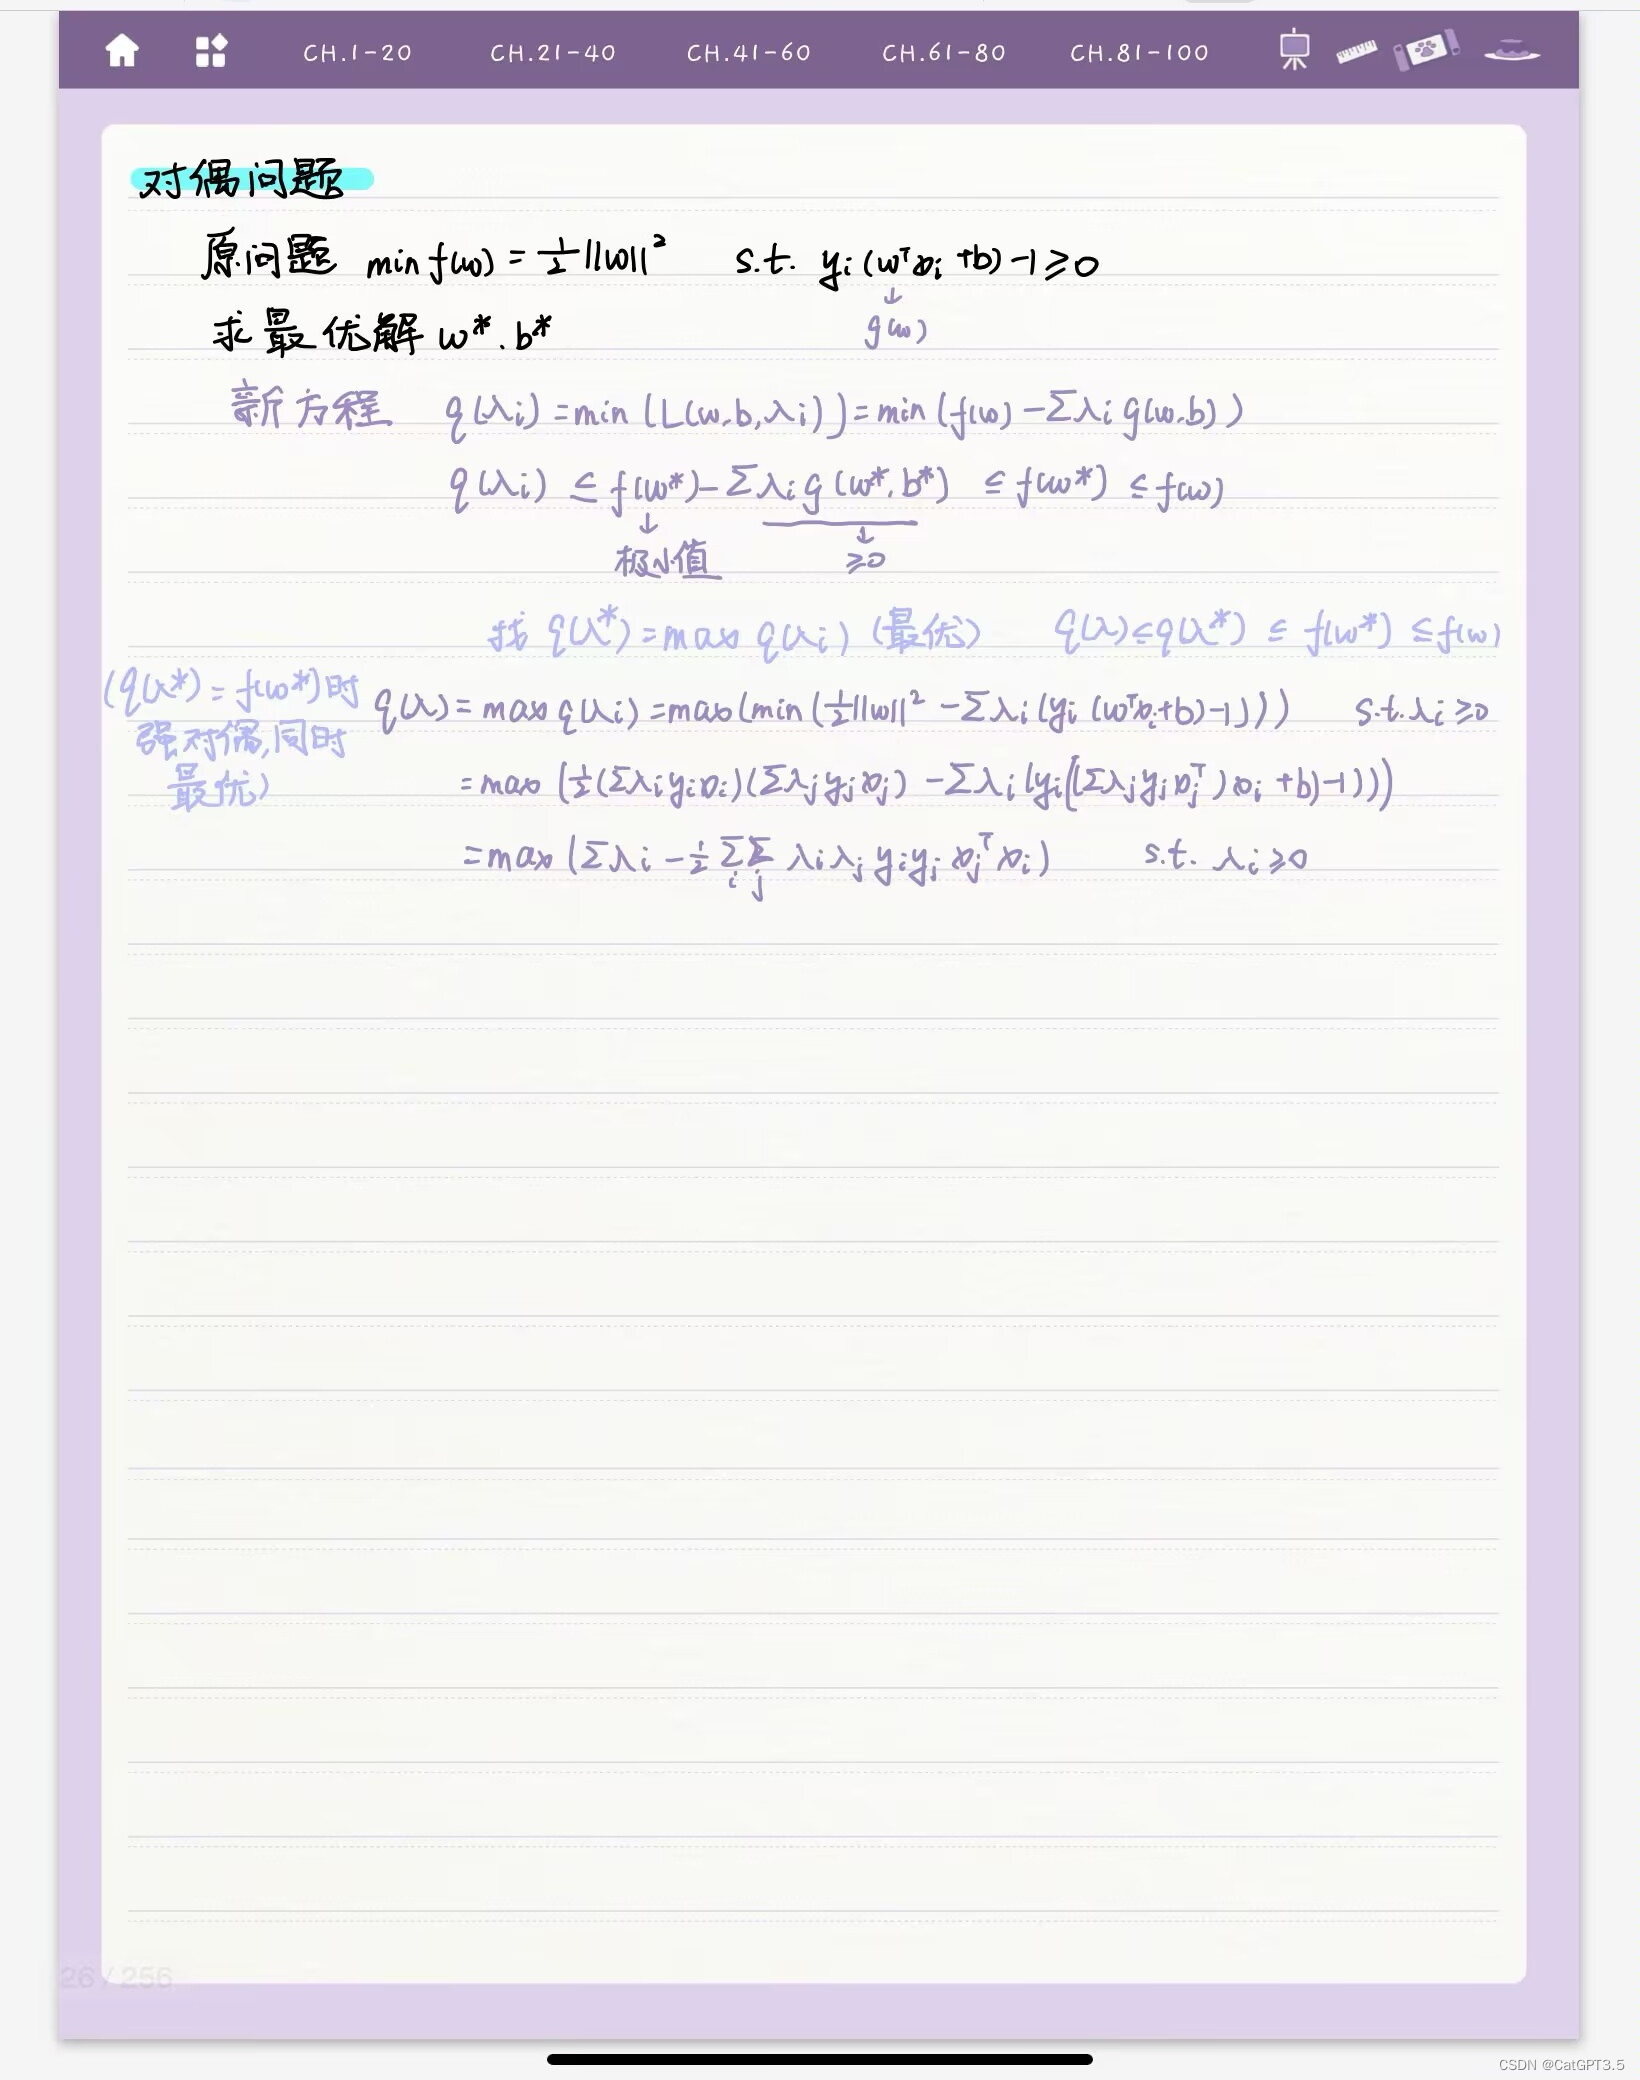 CH.1-20 CH.21-40 CH.41-60 CH.61-80 CH.81-100
对偶问题
原问题 min f(w) = ½||w||² s.t. yᵢ(wᵀxᵢ+b)-1≥0
↓
g(w)
求最优解 w*.b*
新方程 q(λᵢ)=min(L(w.b,λᵢ))=min(f(w)-Σλᵢg(w.b))
q(λᵢ) ≤ f(w*)-Σλᵢg(w*.b*) ≤ f(w*) ≤ f(w)
↓ ↓
极小值 ≥0
找 q(λ*)=max q(λᵢ) (最优) q(λ)≤q(λ*) ≤ f(w*) ≤ f(w)
(q(λ*)=f(w*)时
强对偶,同时
最优)
q(λ)=max q(λᵢ)=max(min(½||w||²-Σλᵢ(yᵢ(wᵀxᵢ+b)-1))) s.t.λᵢ≥0
=max(½(Σλᵢyᵢxᵢ)(Σλⱼyⱼxⱼ)-Σλᵢ(yᵢ((Σλⱼyⱼxⱼᵀ)xᵢ+b)-1)))
=max(Σλᵢ-½ΣᵢΣⱼλᵢλⱼyᵢyⱼxⱼᵀxᵢ) s.t. λᵢ≥0
26/256
CSDN @CatGPT3.5